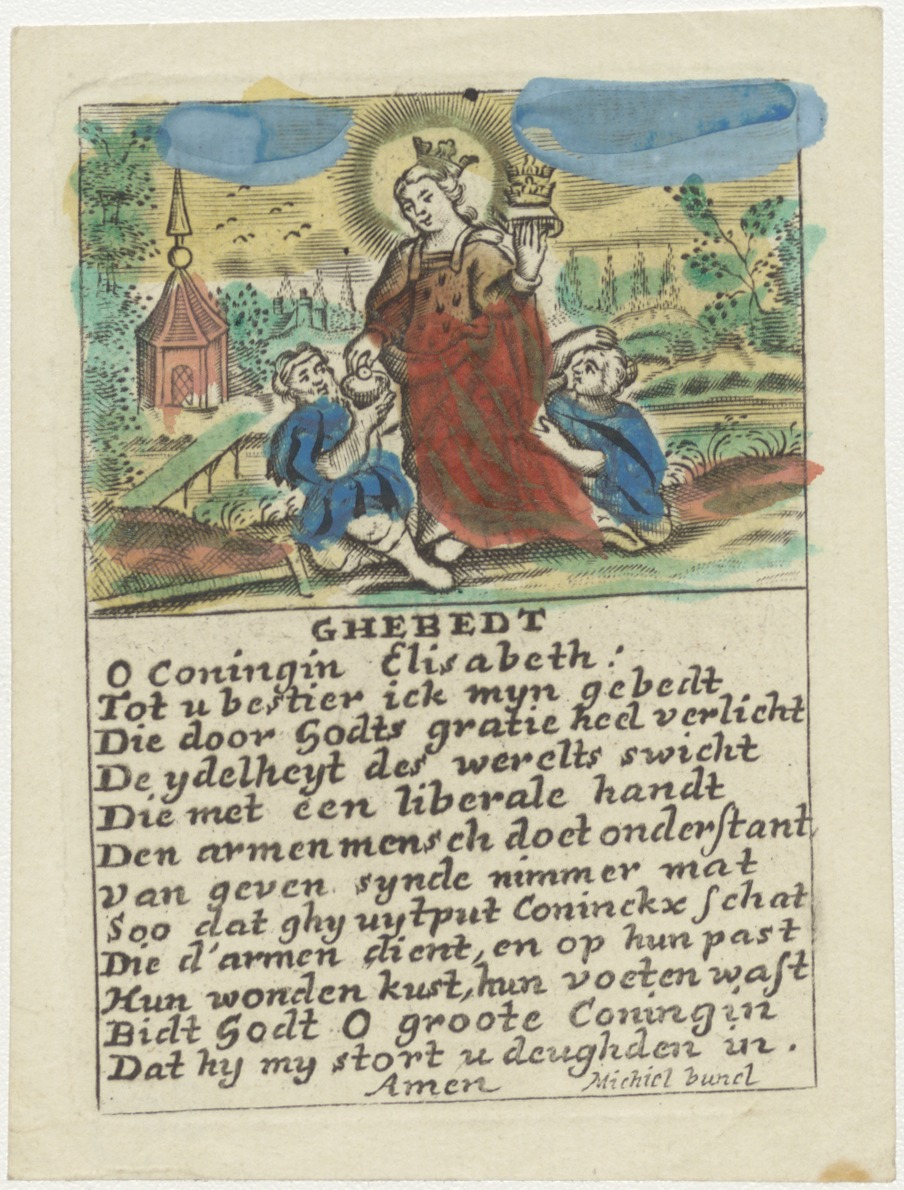 GHEBEDT
O Coningin Elisabeth!
Tot u bestier ick myn gebedt
Die door Godts gratie heel verlicht
De ydelheyt des werelts swicht
Die met een liberale handt
Den armen mensch doet onderſtant,
Van geven synde nimmer mat
Soo dat ghy uytput Coninckx ſchat
Die d'armen dient, en op hun past
Hun wonden kust, hun voeten waſt
Bidt Godt O groote Coningin
Dat hy my stort u deughden in.
Amen
Michiel bunel